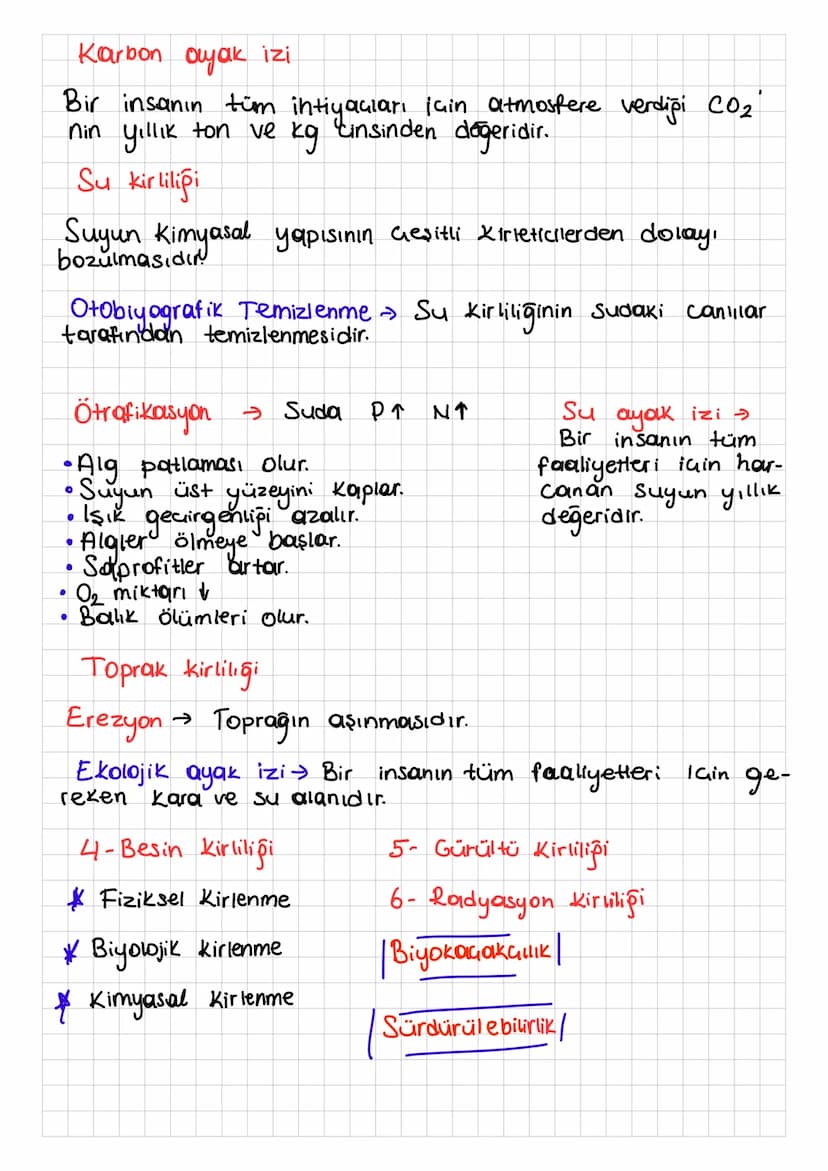 Karbon ayak izi
Bir insanın tüm ihtiyaçları için atmosfere verdiği CO₂'
nin yıllık ton ve kg cinsinden değeridir.
Su kirliliği
Suyun kimyasal yapısının çeşitli kirleticilerden dolayı
bozulmasıdır.
Otobiyografik Temizlenme → Su kirliliğinin sudaki canlılar
tarafından temizlenmesidir.
Ötrafikasyon → Suda P↑ N↑
• Alg patlaması olur.
• Suyun üst yüzeyini kaplar.
• Işık geçirgenliği azalır.
• Algler ölmeye başlar.
• Saprofitler artar.
• O₂ miktarı ↓
• Balık ölümleri olur.
Su ayak izi →
Bir insanın tüm
faaliyetleri için har-
canan suyun yıllık
değeridir.
Toprak kirliliği
Erezyon → Toprağın aşınmasıdır.
Ekolojik ayak izi → Bir insanın tüm faaliyetleri için ge-
reken kara ve su alanıdır.
4- Besin Kirliliği
* Fiziksel Kirlenme
* Biyolojik kirlenme
* Kimyasal Kirlenme
5- Gürültü Kirliliği
6- Radyasyon Kirliliği
|Biyokaçakçılık|
|Sürdürülebilirlik|